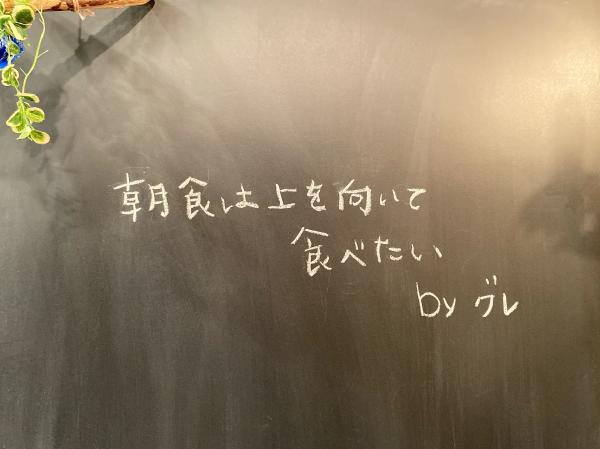 朝食は上を向いて
食べたい
by グレ